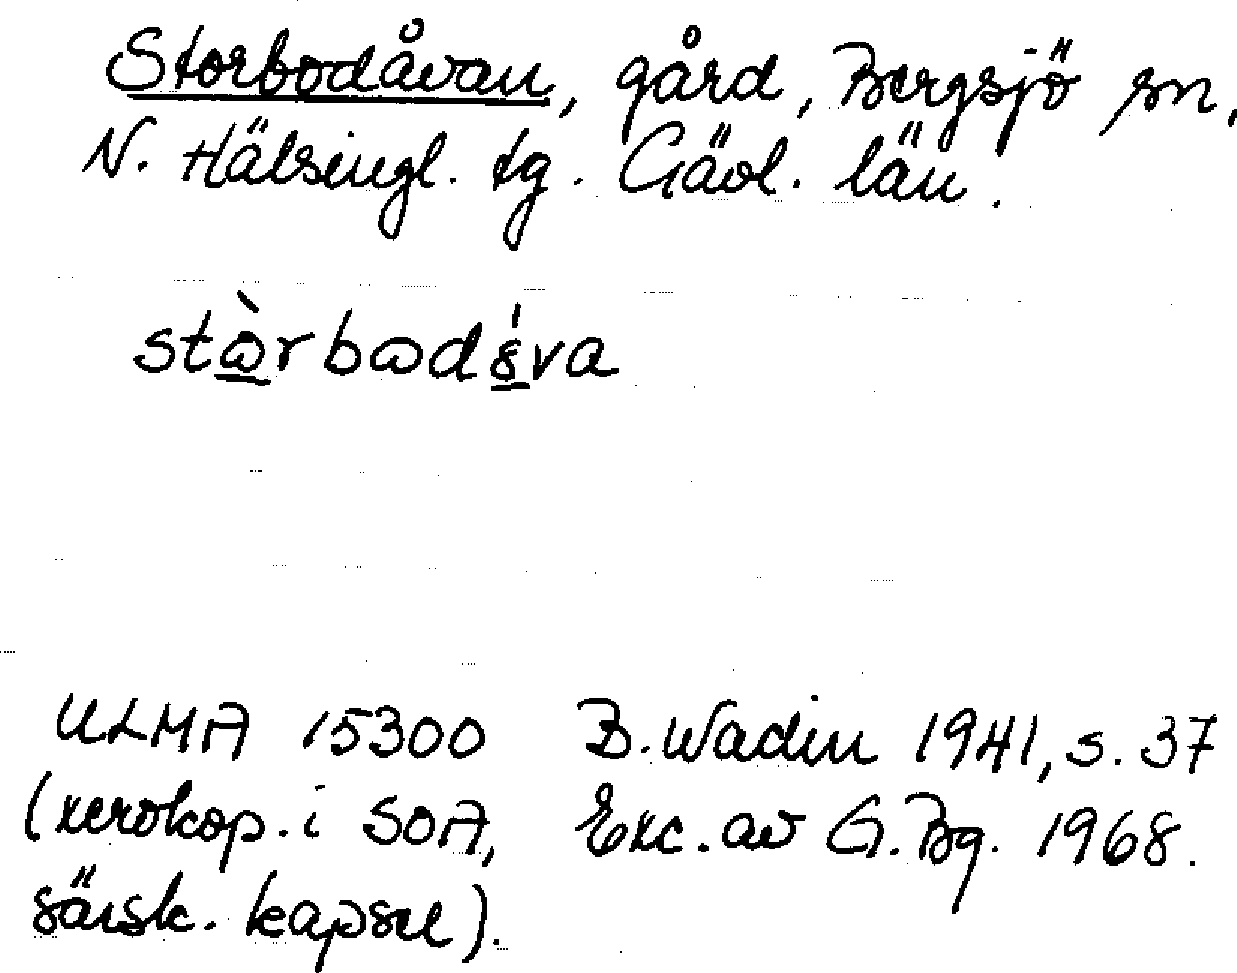 Storbodåvan, gård, Bergsjö sn,
N. Hälsingl. tg. Gävl. län.
stɷ̀rbɷdɞ́va
ULMA 15300 B. Wadin 1941, s. 37
(xerokop. i SOA, Exc. av G. Bg. 1968.
särsk. kapsel).